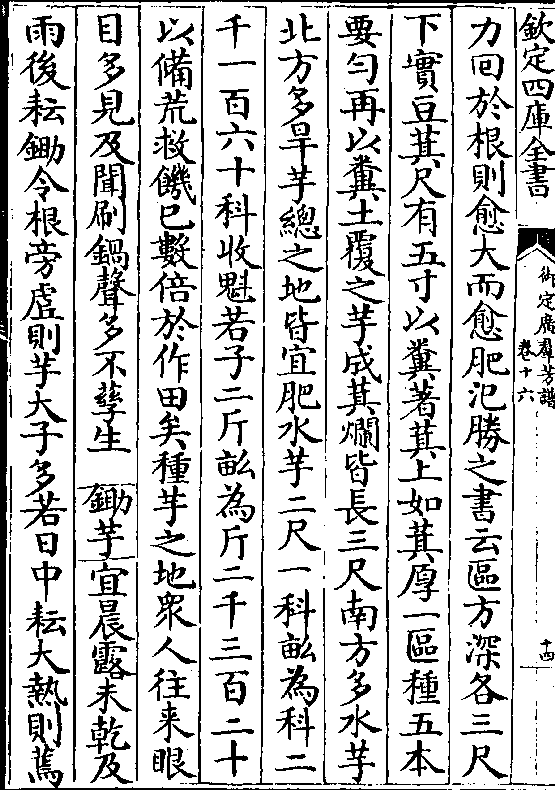 欽定四庫全書
御定廣羣芳譜
卷十六
十四
力回於根則愈大而愈肥氾勝之書云區方深各三尺
下實豆萁尺有五寸以糞著萁上如萁厚一區種五本
要勻再以糞土覆之芋成萁爛皆長三尺南方多水芋
北方多旱芋總之地皆宜肥水芋二尺一科畝為科二
千一百六十科收魁若子二斤畝為斤二千三百二十
以備荒救饑已數倍於作田矣種芋之地衆人往来眼
目多見及聞刷鍋聲多不孳生 鋤芋宜晨露未乾及
雨後耘鋤令根旁虛則芋大子多若日中耘大熱則蔫